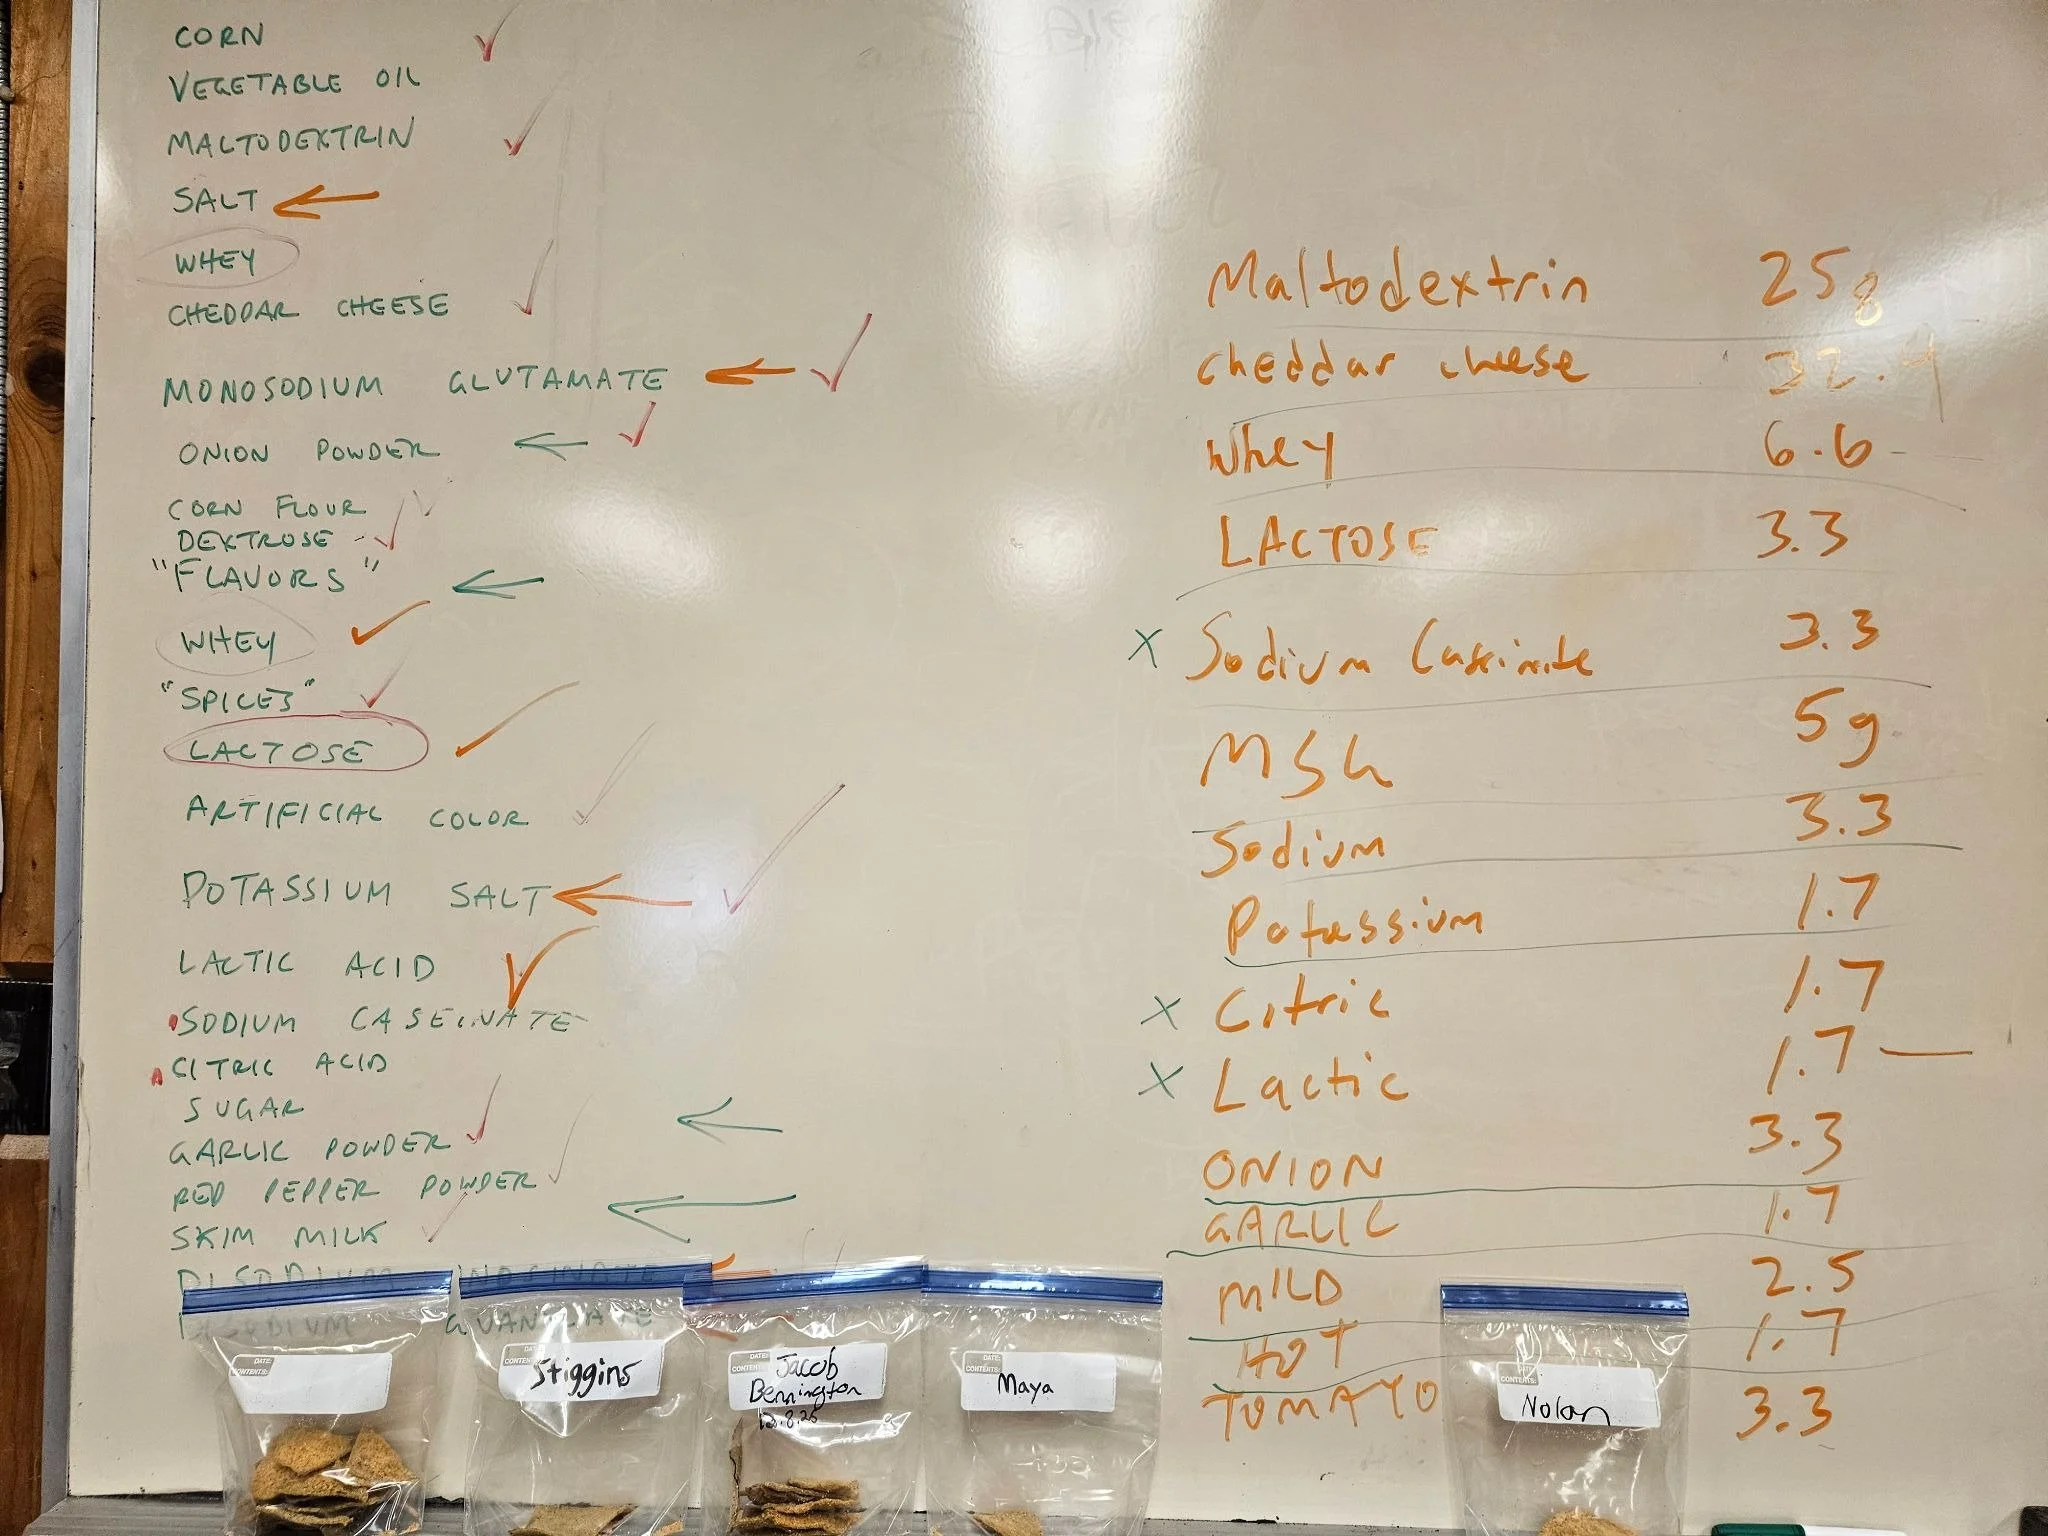 CORN
VEGETABLE OIL
MALTODEXTRIN
SALT
WHEY
CHEDDAR CHEESE
MONOSODIUM GLUTAMATE
ONION POWDER
CORN FLOUR
DEXTROSE
"FLAVORS"
WHEY
"SPICES"
LACTOSE
ARTIFICIAL COLOR
POTASSIUM SALT
LACTIC ACID
SODIUM CASEINATE
CITRIC ACID
SUGAR
GARLIC POWDER
RED PEPPER POWDER
SKIM MILK
DISODIUM INOSINATE
DISODIUM GUANYLATE
Maltodextrin 25g
cheddar cheese 32.4
Whey 6.6
LACTOSE 3.3
X Sodium Cassinite 3.3
MSG 5g
Sodium 3.3
Potassium 1.7
X Citric 1.7
X Lactic 1.7
ONION 3.3
GARLIC 1.7
MILD 2.5
HOT 1.7
TOMATO 3.3
DATE:
CONTENTS:
DATE:
CONTENTS:
Stiggins
DATE:
CONTENTS:
Jacob
Bennington
12.8.25
DATE:
CONTENTS:
Maya
DATE:
CONTENTS:
Nolan